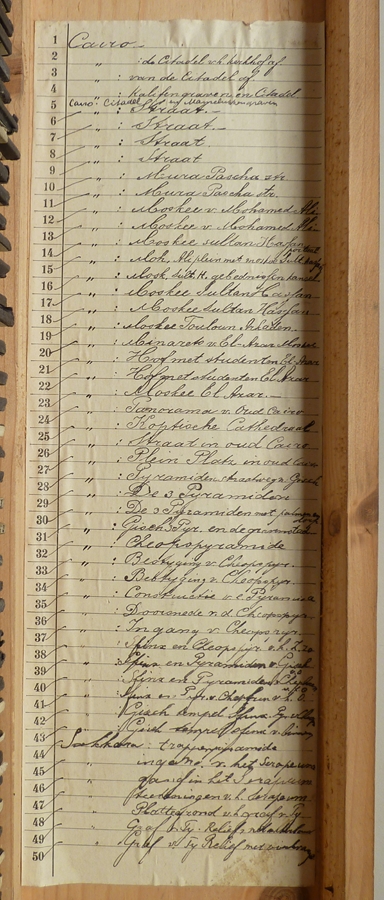 1 Cairo
2 " : de Citadel v.h. kerkhof af.
3 " : van de Citadel af
4 " : Kalifengraven en Citadel
5 Cairo: Citadel
6 " : Straat.
7 " : Straat.
8 " : Straat
9 " : Straat
10 " : Mura Pascha str
11 " : Mura Pascha str.
12 " : Moskee v. Mohamed Ali
13 " : Moskee v. Mohamed Ali
14 " : Moskee sultan Hassan
15 " : Moh. Ali plein met
16 " : Mosk. Sult. H.
17 " : Moskee Sultan Hassan
18 " : Moskee sultan Hassan
19 " : Moskee Touloun Arkaden
20 " : Minarets v. El-Azar Moskee
21 " : Hof met studenten El-Azar
22 " : Hof met studenten El-Azar
23 " : Moskee El Azar
24 " : Panorama v. Oud Cairo
25 " : Koptische Cathedraal
26 " : Straat in oud Cairo
27 " : Plein Platz in oud Cairo
28 " : Pyramiden straatweg n. Giseh
29 " : De 3 Pyramiden
30 " : De 3 Pyramiden met palmen
31 " : Giseh 3 Pyr. en de
32 " : Cheopspyramide
33 " : Bestijging v. Cheopspyr.
34 " : Bestijging v. Cheopspyr.
35 " : Constructie v.e. Pyramide
36 " : Doorsnede v.d. Cheopspyr.
37 " : Ingang v. Cheopspyr.
38 " : Sfinx en Cheopspyr. v.h. Z.O.
39 " : Sfinx en Pyramiden v. Giseh
40 " : Sfinx en Pyramiden
41 " : Sfinx en Pyr. v. Chefren v.h. O.
42 " : Giseh tempel Sfinx
43 " : Giseh tempel Sfinx v. binnen
44 Sakkhara : trappenpyramide
45 " ingang v. het Serapeum
46 " gang in het Serapeum
47 " v.h. Serapeum
48 " Plattegrond v.h. graf v. Ty
49 " Graf v. Ty. Relief
50 " Graf v. Ty Relief met